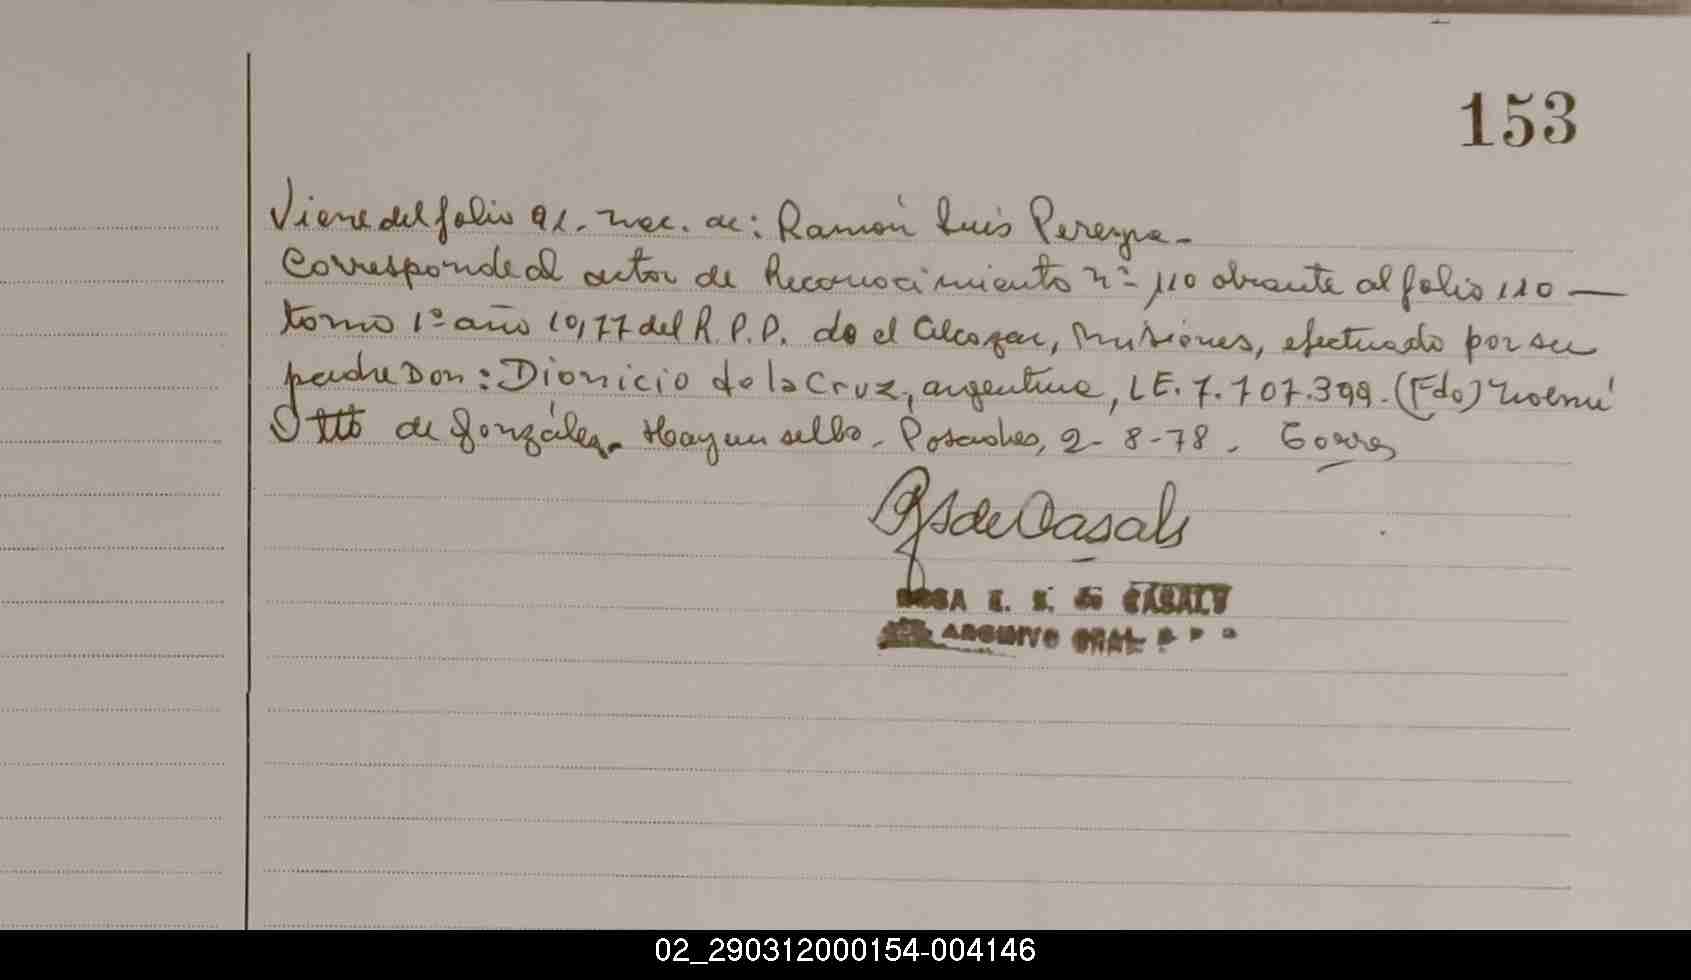 153
Viene del folio 91. nac. de: Ramón Luis Pereyra.
Corresponde al acta de Reconocimiento nº 110 obrante al folio 110 —
tomo 1º año 1977 del R. P. P. de el Alcazar, Misiones, efectuado por su
padre Don: Dionicio de la Cruz, argentino, L.E. 7.707.399. (Fdo) Noemí
Otto de González. Hay un sello. Posadas, 2-8-78.
de Casals
ROSA E. S. de CASALS
ARCHIVO GRAL. R P P
02_290312000154-004146